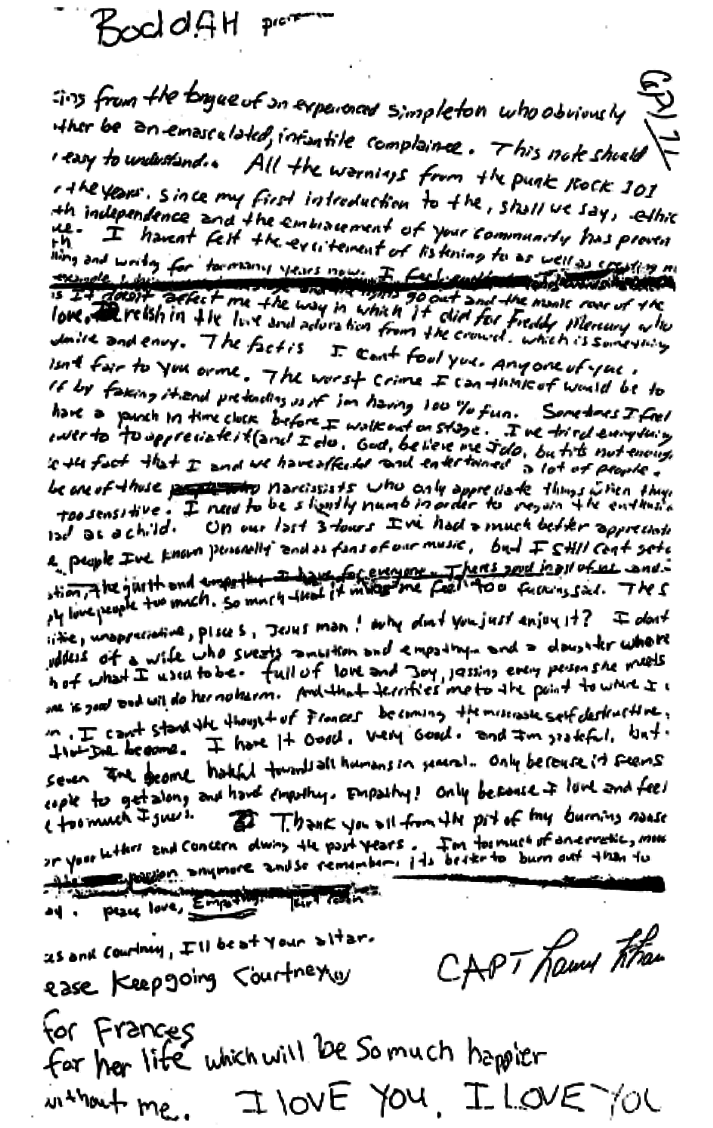 BoddAH
from the tongue of an experienced simpleton who obviously
ther be an emasculated, infantile complainee. This note should
easy to understand.. All the warnings from the punk Rock 101
the years. since my first introduction to the, shall we say, ethic
th independence and the embracement of your community has proven
ue. I havent felt the excitement of listening to as well as creating
th
and writing for too many years now. I feel
is it doesnt affect me the way in which it did for Freddy Mercury who
love, relish in the love and adoration from the crowd. which is something
dmire and envy. The fact is I Cant fool you. Any one of you.
isnt fair to you or me. The worst Crime I can think of would be to
ff by faking it and pretending as if im having 100% fun. Sometimes I feel
have a punch in time clock before I walk out on stage. I've tried everything
ower to to appreciate it (and I do. God, believe me I do, but its not enough
the fact that I and we have affected and entertained a lot of people.
be one of those narcissists who only appreciate things when they
Too sensitive. I need to be slightly numb in order to regain the enthusia
had as a child. On our last 3 tours I've had a much better appreciati
people I've known personally and as fans of our music, but I still cant get
ation, the guilt and empathy I have for everyone. Theres good in all of us and
ply love people too much. So much that it makes me feel too fucking sad. The S
itive, unappreciative, pisces, Jesus man! Why dont you just enjoy it? I dont
oddess of a wife who sweats ambition and empathy.. and a daughter who re
h of what I used to be. full of love and Joy, kissing every person she meets
one is good and will do her no harm. And that terrifies me to the point to where I
n. I cant stand the thought of Frances becoming the miserable self destructive,
that I've become. I have it Good. Very Good. and I'm grateful, but
seven I've become hateful towards all humans in general.. Only because it seems
eople to get along and have empathy. Empathy! Only because I love and feel
too much I guess. Thank you all from the pit of my burning nause
or your letters and Concern during the past years. I'm too much of an erratic, moo
passion anymore and so remember, its better to burn out than to
ay. peace love, Empathy. Kurt Cobain
es and Courtney, I'll be at your altar.
ease Keep going Courtney
CAPT
for Frances
for her life which will be so much happier
without me. I LOVE YOU. I LOVE YOU